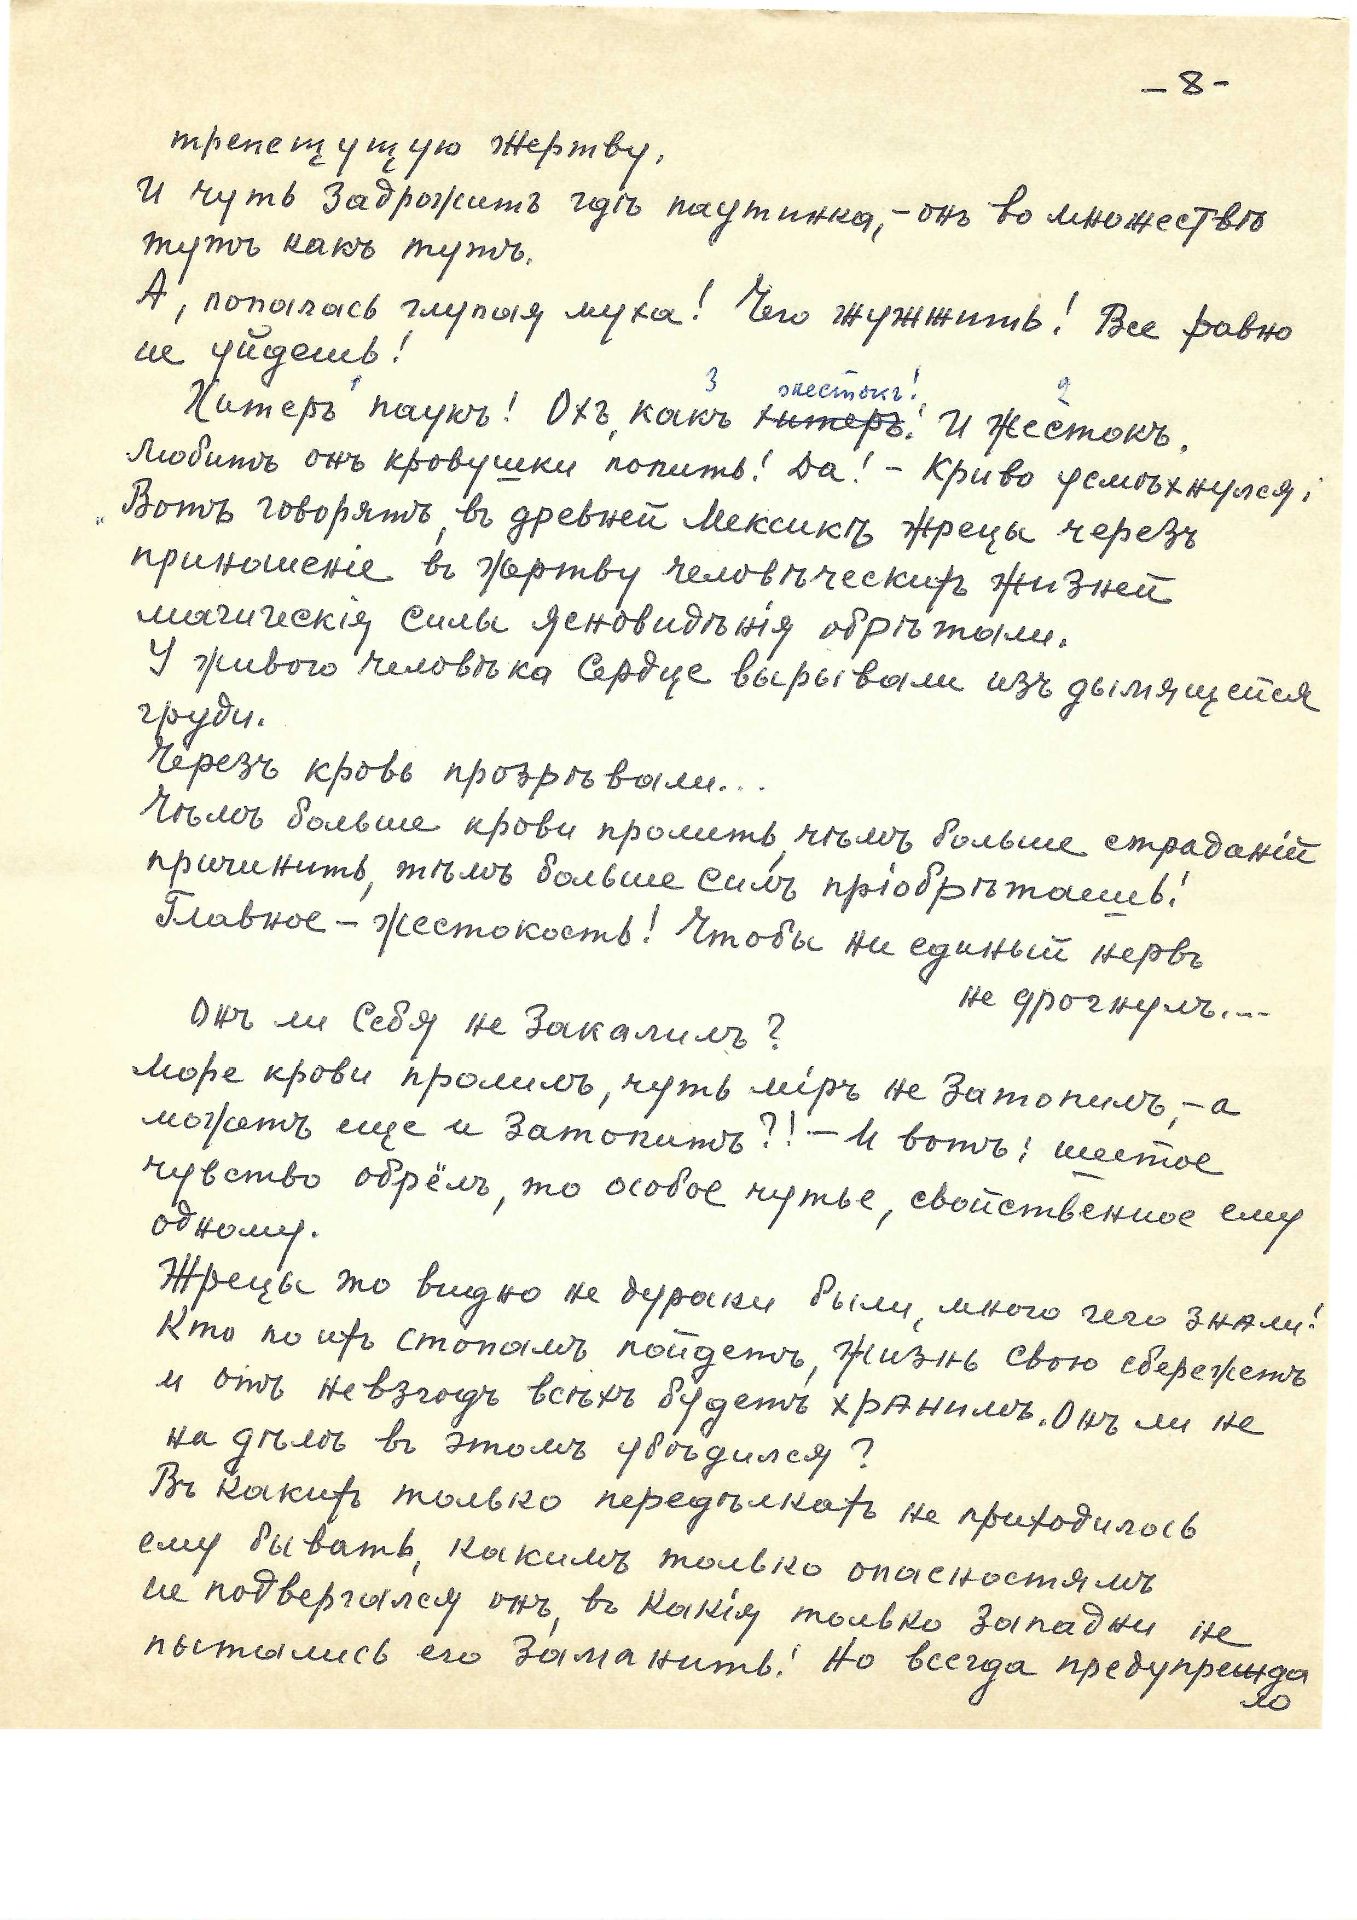 – 8 –
трепещущую жертву.
И чуть задрожитъ гдѣ паутинка, – онъ во множествѣ
тутъ какъ тутъ.
А, попалась глупая муха! Чего жужжить! Все равно
не уйдешь!
3 жестокъ! 2
Хитеръ 1 паукъ! Охъ, какъ хитеръ! И жестокъ.
Любитъ онъ кровушки попить! Да! – Криво усмѣхнулся:
„Вотъ говорятъ, въ древней Мексикѣ жрецы черезъ
приношеніе въ жертву человѣческихъ жизней
магическія силы ясновидѣнія обрѣтали.
У живого человѣка сердце вырывали изъ дымящейся
груди.
Черезъ кровь прозрѣвали...
Чѣмъ больше крови пролить, чѣмъ больше страданій
причинить, тѣмъ больше силъ пріобрѣтаешь!
Главное – жестокость! Чтобы ни единый нервъ
не дрогнулъ...
Онъ ли себя не закалилъ?
Море крови пролилъ, чуть міръ не затопилъ, – а
можетъ еще и затопитъ?! – И вотъ: шестое
чувство обрёлъ, то особое чутье, свойственное ему
одному.
Жрецы то видно не дураки были, много чего знали!
Кто по ихъ стопамъ пойдетъ, жизнь свою сбережетъ
и отъ невзгодъ всѣхъ будетъ хранимъ. Онъ ли не
на дѣлѣ въ этомъ убѣдился?
Въ какихъ только передѣлкахъ не приходилось
ему бывать, какимъ только опасностямъ
не подвергался онъ, въ какія только западни не
пытались его заманить! Но всегда предупрежда
ло